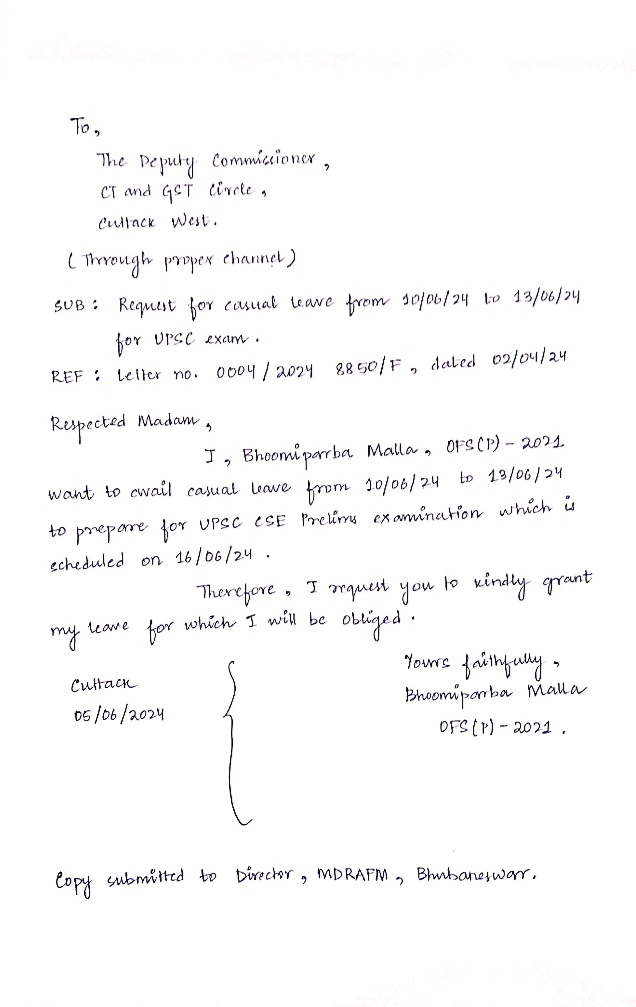 To,
The Deputy Commissioner,
CT and GST Circle,
Cuttack West.
(Through proper channel)
SUB : Request for casual leave from 10/06/24 to 13/06/24
for UPSC exam.
REF : Letter no. 0004 / 2024 8850/F, dated 02/04/24
Respected Madam,
I, Bhoomiparba Malla, OFS(P) - 2021
want to avail casual leave from 10/06/24 to 13/06/24
to prepare for UPSC CSE Prelims examination which is
scheduled on 16/06/24.
Therefore, I request you to kindly grant
my leave for which I will be obliged.
Cuttack
05/06/2024
Yours faithfully,
Bhoomiparba Malla
OFS(P) - 2021.
Copy submitted to Director, MDRAFM, Bhubaneswar.